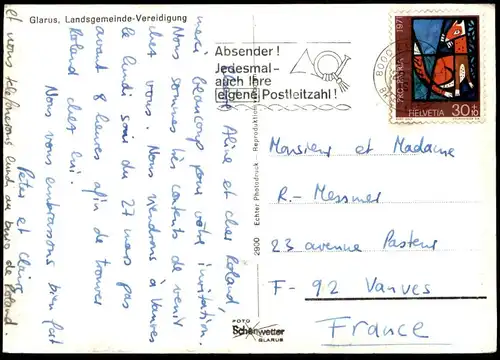 Glarus, Landsgemeinde-Vereidigung
Aline et cher Roland,
merci beaucoup pour votre invitation.
Nous sommes très contents de venir
chez vous. Nous viendrons à Vanves
le lundi soir du 27 mars pas
avant 8 heures afin de trouver
Roland chez lui.
Nous vous embrassons bien fort
Peter et Claire
et nous téléphonerons lundi au bureau de Roland.
2900 Echter Photodruck — Reproduktion
FOTO
Schönwetter
GLARUS
Absender!
Jedesmal-
auch Ihre
eigene Postleitzahl!
8000
PRO PATRIA 1971
HELVETIA 30+10
Monsieur et Madame
R. - Messmer
23 avenue Pasteur
F - 92 Vanves
France